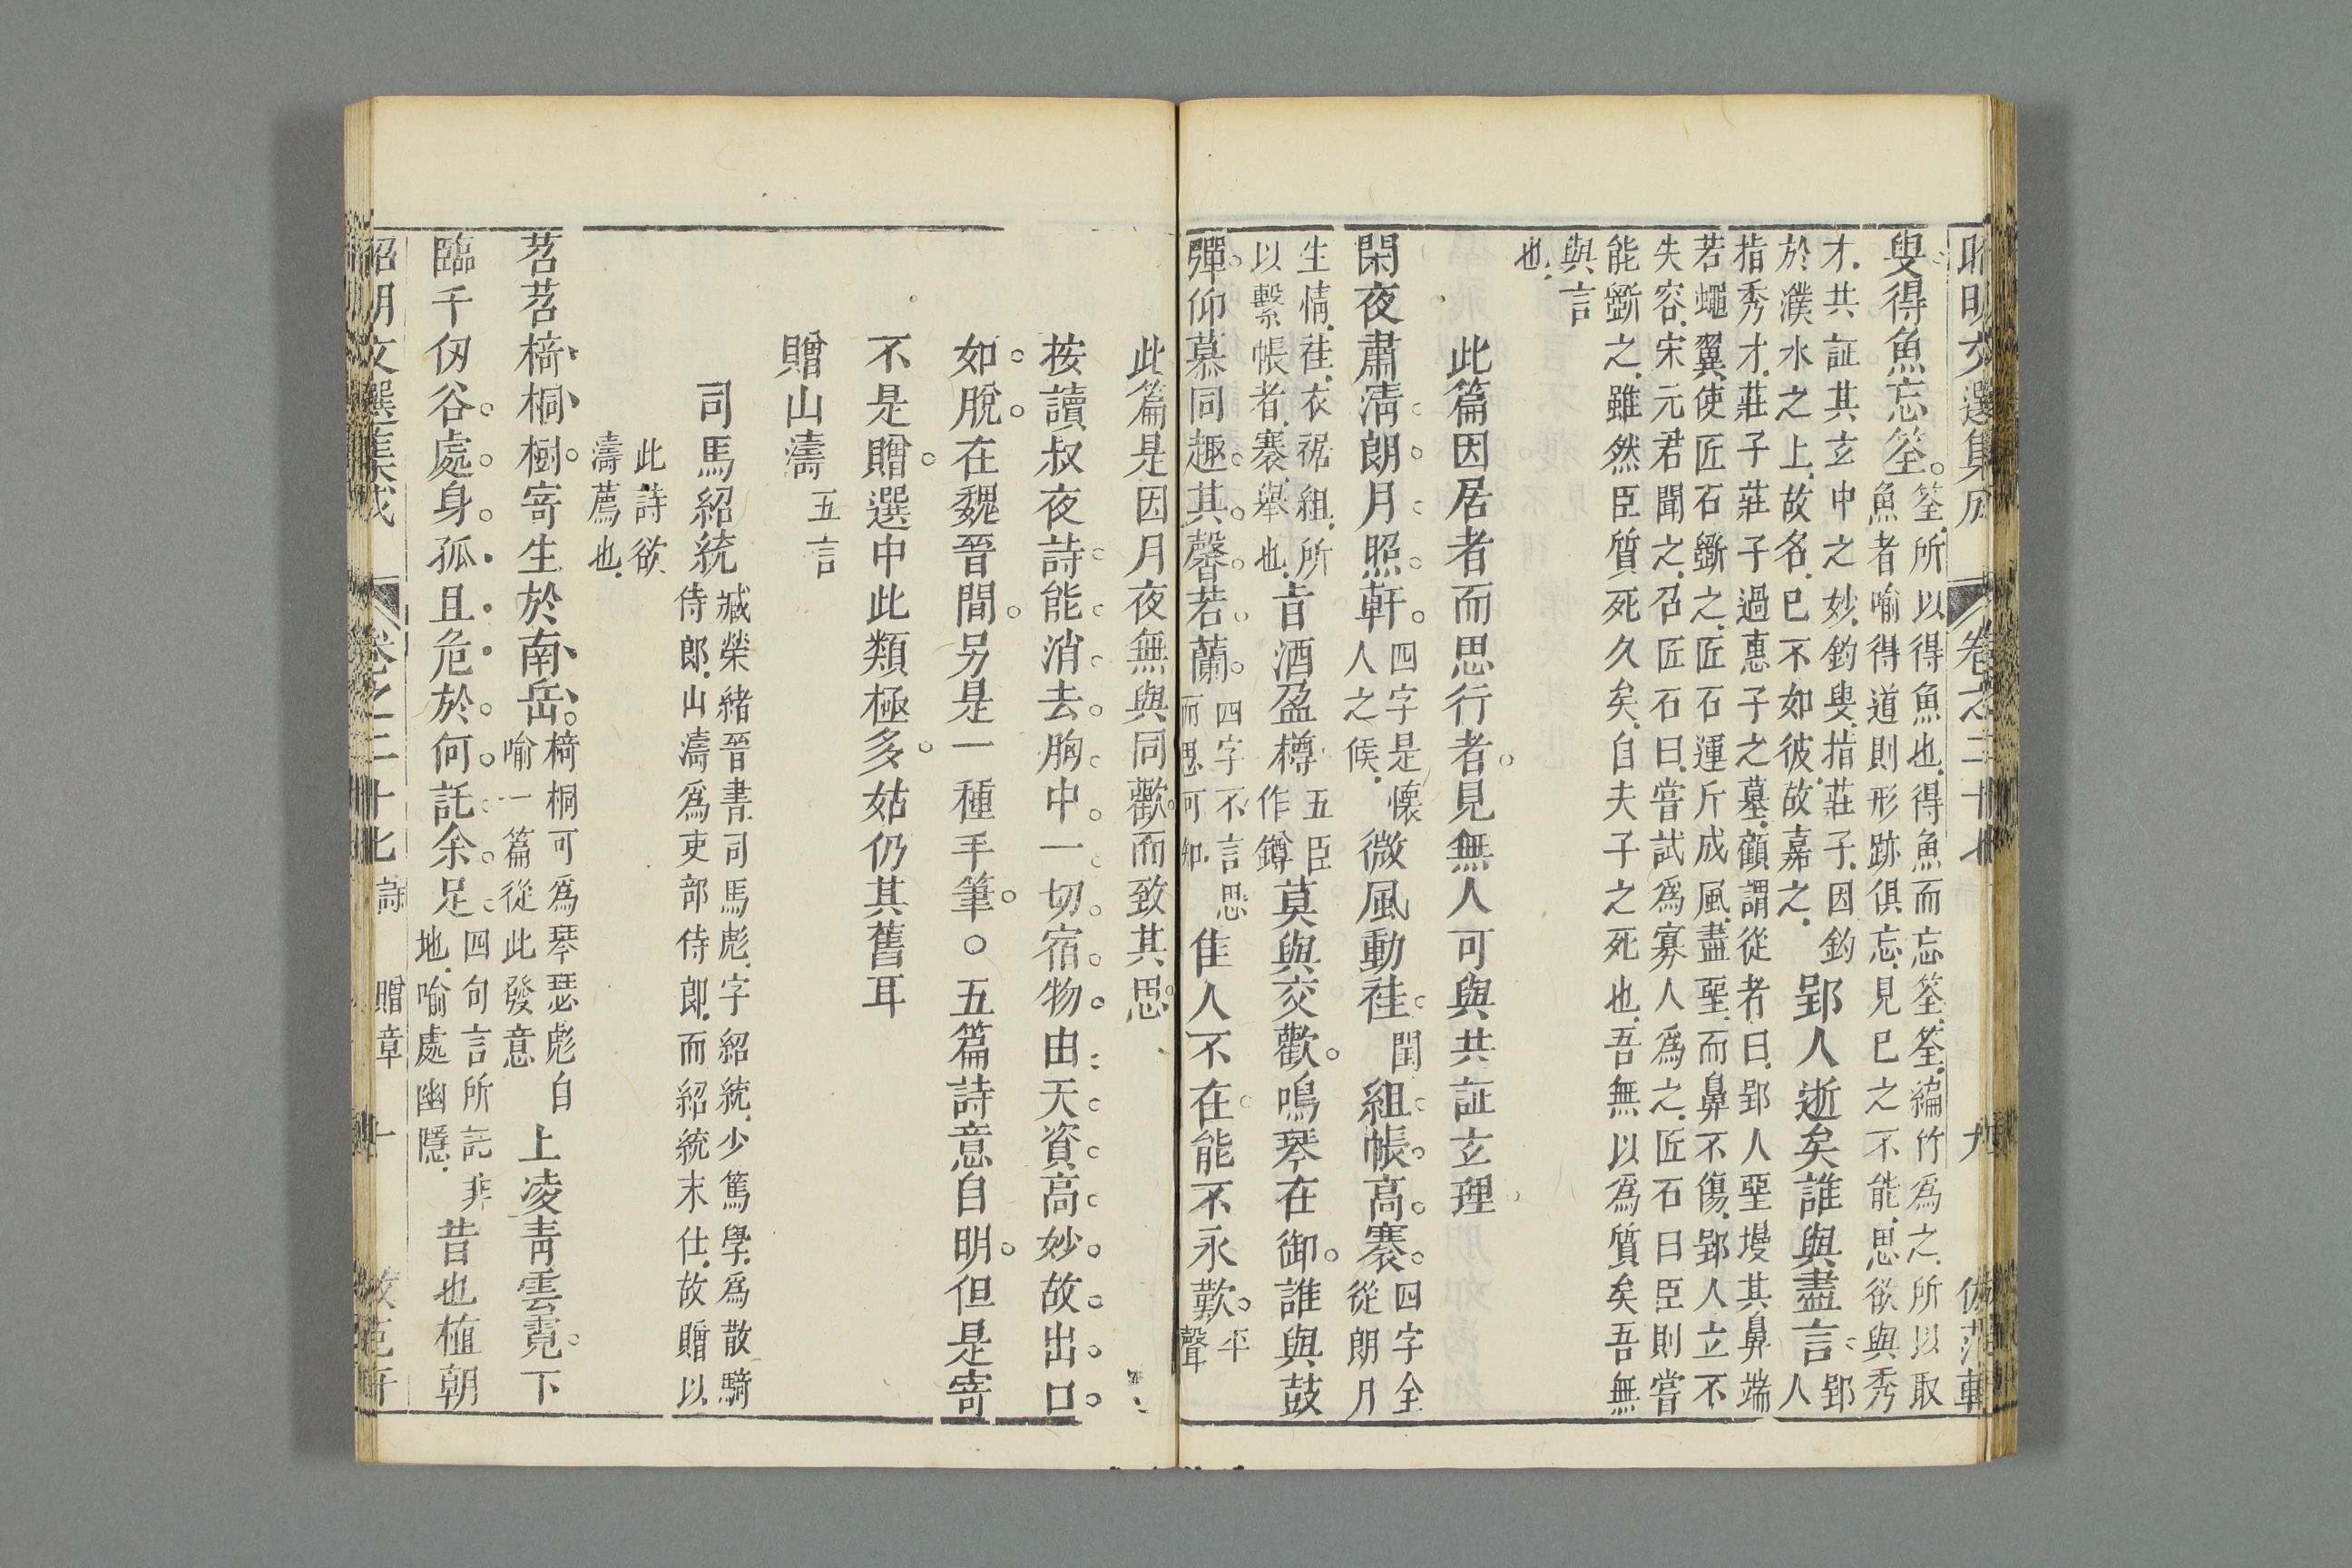 昭明文選集成 卷之二十七 九 倣范軒
叟得魚忘筌筌所以得魚也得魚而忘筌筌編竹爲之所以取
魚者喻得道則形跡俱忘見巳之不能思欲與秀
才共証其玄中之妙釣叟指莊子因釣
於濮水之上故名巳不如彼故嘉之郢人逝矣誰與盡言郢人
指秀才莊子莊子過惠子之墓顧謂從者曰郢人堊墁其鼻端
若蠅翼使匠石斵之匠石運斤成風盡堊而鼻不傷郢人立不
失容宋元君聞之召匠石曰嘗試爲寡人爲之匠石曰臣則嘗
能斵之雖然臣質死久矣自夫子之死也吾無以爲質矣吾無
與言
也
此篇因居者而思行者見無人可與共証玄理
閑夜肅淸朗月照軒四字是懷人之候微風動袿閨組帳高褰四字全從朗月
生情袿衣裾組所以繫帳者褰舉也旨酒盈樽五臣作鐏莫與交歡鳴琴在御誰與鼓
彈仰慕同趣其馨若蘭四字不言思而思可知隹人不在能不永歎平聲
此篇是因月夜無與同歡而致其思
按讀叔夜詩能消去胸中一切宿物由天資高妙故出口
如脫在魏晉間另是一種手筆○五篇詩意自明但是寄
不是贈選中此類極多姑仍其舊耳
贈山濤五言
司馬紹統臧榮緒晉書司馬彪字紹統少篤學爲散騎
侍郎山濤爲吏部侍郎而紹統末仕故贈以
此詩欲
濤薦也
苕苕椅桐樹寄生於南岳椅桐可爲琴瑟彪自喻一篇從此發意上凌靑雲霓下
臨千仞谷處身孤且危於何託余足四句言所託非地喻處幽隱昔也植朝
昭明文選集成 卷之二十七 詩 贈章 十